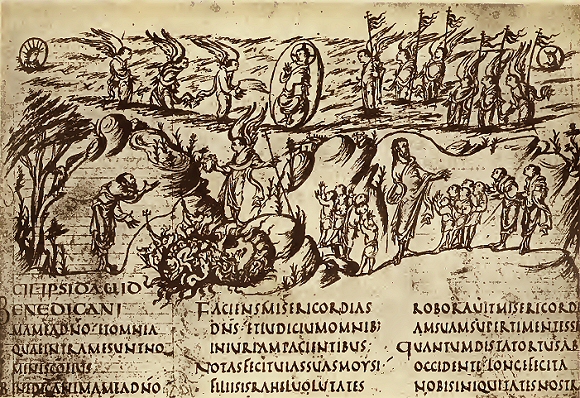 CII EIPSI DAUID
BENEDICANI
MAMEADNO ETOMNIA
QUAEINTRAMESUNTNO
MINISCOEIUS
BENEDICANIMAMEADNO
FACIENSMISERICORDIAS
DNS ETIUDICIUMOMNIB;
INIURIAMPACIENTIBUS:
NOTASFECITUIASSUASMOYSI
FILIISISRAHELUOLUTATES
ROBORAUITMISERICORD
AMSUAMSUPERTIMENTESS
QUANTUMDISTATORTUSAB
OCCIDENTE LONGEFECITA
NOBISINIQUITATESNOSTR